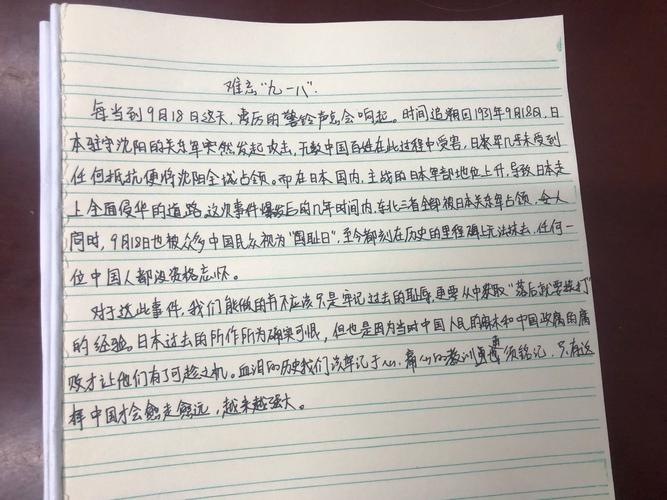 难忘“九一八”
每当到9月18日这天,凄厉的警铃声总会响起。时间追溯回1931年9月18日,日
本驻守沈阳的关东军突然发起攻击,无数中国百姓在此过程中受害,日本军几乎未受到
任何抵抗便将沈阳全城占领。而在日本国内,主战的日本军部地位上升,导致日本走
上全面侵华的道路。这次事件爆发后的几年时间内,东北三省全部被日本关东军占领。
同时,9月18日也被众多中国民众视为“国耻日”,至今都刻在历史的里程碑上无法抹去,任何一
位中国人都没资格忘怀。
对于这此事件,我们能做的有不应该只是牢记过去的耻辱,更要从中获取“落后就要挨打”
的经验。日本过去的所作所为确实可恨,但也是因为当时中国人民的麻木和中国政府的腐
败才让他们有了可趁之机。血泪的历史我们该牢记于心,痛心的教训更须铭记,只有这
样中国才会愈走愈远,越来越强大。